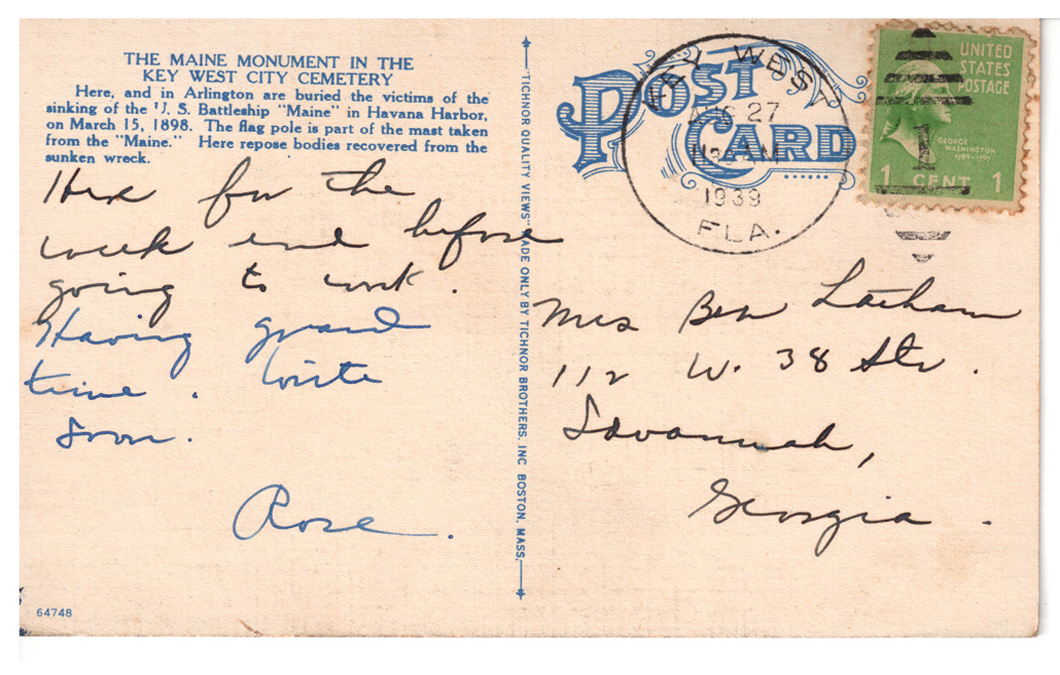 THE MAINE MONUMENT IN THE
KEY WEST CITY CEMETERY
Here, and in Arlington are buried the victims of the
sinking of the U. S. Battleship "Maine" in Havana Harbor,
on March 15, 1898. The flag pole is part of the mast taken
from the "Maine." Here repose bodies recovered from the
sunken wreck.
Here for the
week end before
going to work.
Having grand
time. Write
soon.
Rose.
64748
"TICHNOR QUALITY VIEWS" MADE ONLY BY TICHNOR BROTHERS, INC BOSTON, MASS.
POST
CARD
KEY WEST
27
AM
1939
FLA.
UNITED
STATES
POSTAGE
GEORGE
WASHINGTON
1789-1797
1
1 CENT 1
Mrs Ben Latham
112 W. 38 Str.
Savannah,
Georgia.